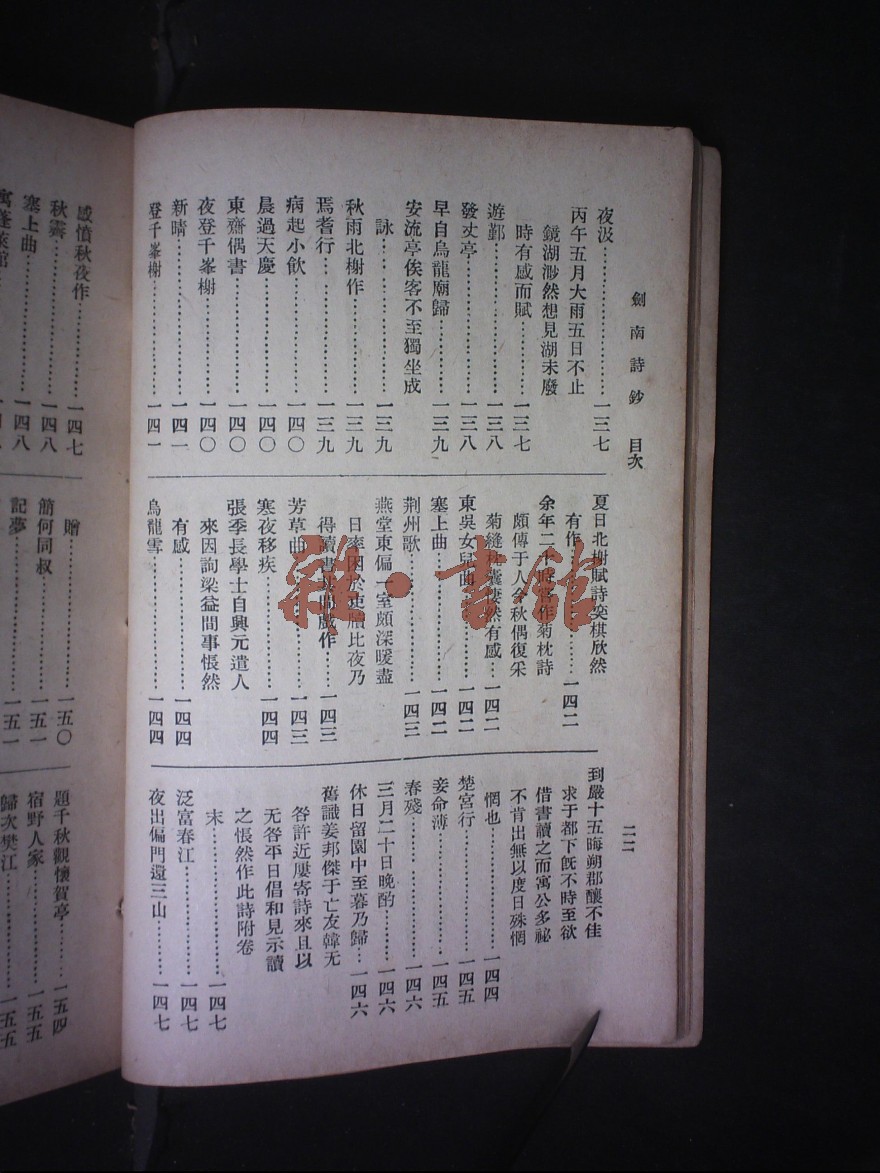 劍南詩鈔　目次
二二
夜汲……一三七
丙午五月大雨五日不止
鏡湖渺然想見湖未廢
時有感而賦……一三七
遊鄞……一三八
發丈亭……一三八
早自烏龍廟歸……一三九
安流亭俟客不至獨坐成
詠……一三九
秋雨北榭作……一三九
焉耆行……一三九
病起小飲……一四〇
晨過天慶……一四〇
東齋偶書……一四〇
夜登千峯榭……一四〇
新晴……一四一
登千峯榭……一四一
夏日北榭賦詩奕棋欣然
有作……一四二
余年二十時嘗作菊枕詩
頗傳于人今秋偶復采
菊縫枕囊悽然有感……一四二
東吳女兒曲……一四二
塞上曲……一四二
荆州歌……一四三
燕堂東偏一室頗深暖盡
日率困於吏牘比夜乃
得讀書其間戲作……一四三
芳草曲……一四三
寒夜移疾……一四四
張季長學士自興元遣人
來因詢梁益間事悵然
有感……一四四
烏龍雪……一四四
到嚴十五晦朔郡釀不佳
求于都下旣不時至欲
借書讀之而寓公多祕
不肯出無以度日殊惘
惘也……一四四
楚宮行……一四五
妾命薄……一四五
春殘……一四六
三月二十日晚酌……一四六
休日留園中至暮乃歸…一四六
舊識姜邦傑于亡友韓无
咎許近屢寄詩來且以
无咎平日倡和見示讀
之悵然作此詩附卷
末……一四七
泛富春江……一四七
夜出偏門還三山……一四七
感憤秋夜作……一四七
秋霽……一四八
塞上曲……一四八
寓蓬萊館
贈……一五〇
簡何同叔……一五一
記夢……一五一
題千秋觀懷賀亭……一五四
宿野人家……一五五
歸次樊江……一五五
雜·書館